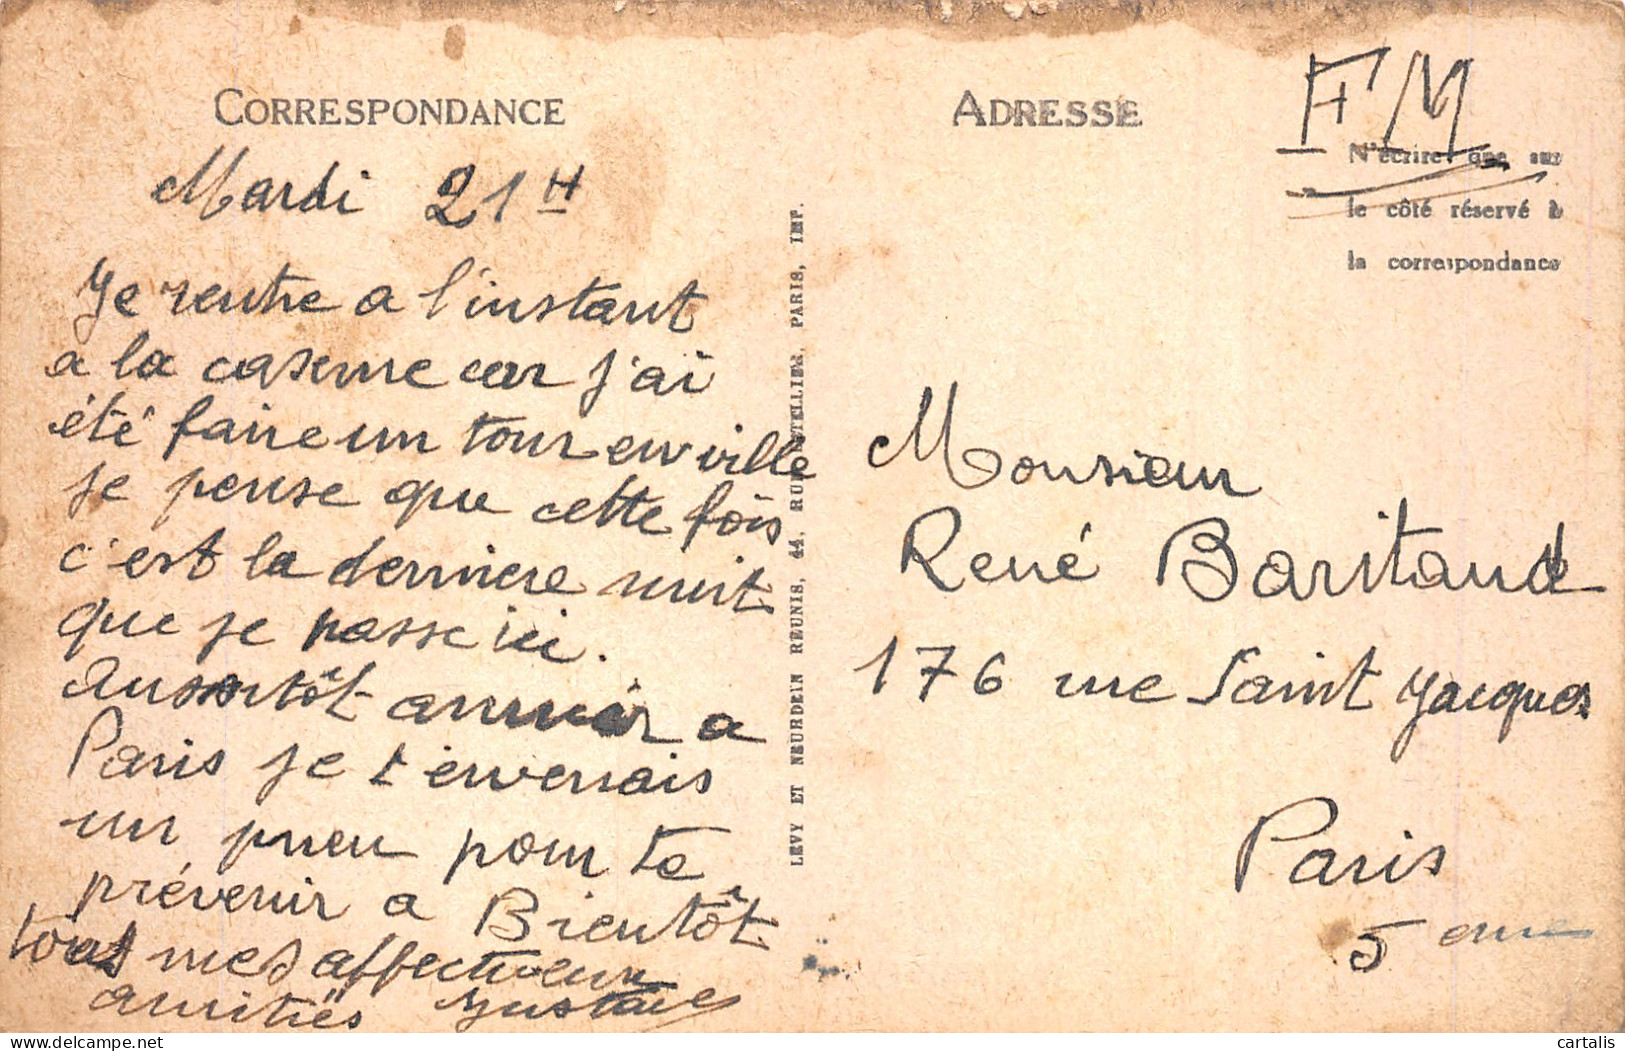 CORRESPONDANCE
Mardi 21 H
Je rentre a l'instant
a la caserne car j'ai
été faire un tour en ville
je pense que cette fois
c'est la derniere nuit
que je passe ici.
Aussitôt arriver a
Paris je t'enverrais
un pneu pour te
prévenir a Bientôt
tous mes affectueux
amitiés Gustave
LÉVY ET NEURDEIN RÉUNIS, 44, RUE LETELLIER, PARIS, IMP.
ADRESSE
FM
N'écrire que sur
le côté réservé à
la correspondance
Monsieur
René Baritaud
176 rue Saint Jacques
Paris
5 eme
cartalis
delcampe.net